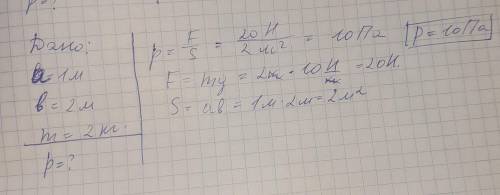 p = ?
Дано:
a = 1м
b = 2м
m = 2кг.
p = ?
p = F/S = 20Н/2м² = 10Па p = 10Па
F = mg = 2кг · 10Н/кг = 20Н.
S = ab = 1м · 2м = 2м²